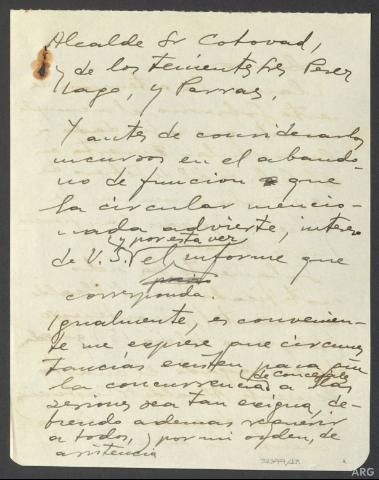 Alcalde Sr Cotovad,
y de los tenientes Sres Perez
Lago, y Parras,
Y antes de considerarlos
incursos en el abando-
no de funcion que
la circular mencio-
nada advierte, intereso
y por esta vez
de V. S. el informe que
corresponda.
Igualmente, es convenien-
te me exprese que circuns
tancias existen para que
la concurrencia de concejales a las
sesiones sea tan exigua, de-
biendo ademas requerir
a todos, y por mi orden, de
asistencia
ARG